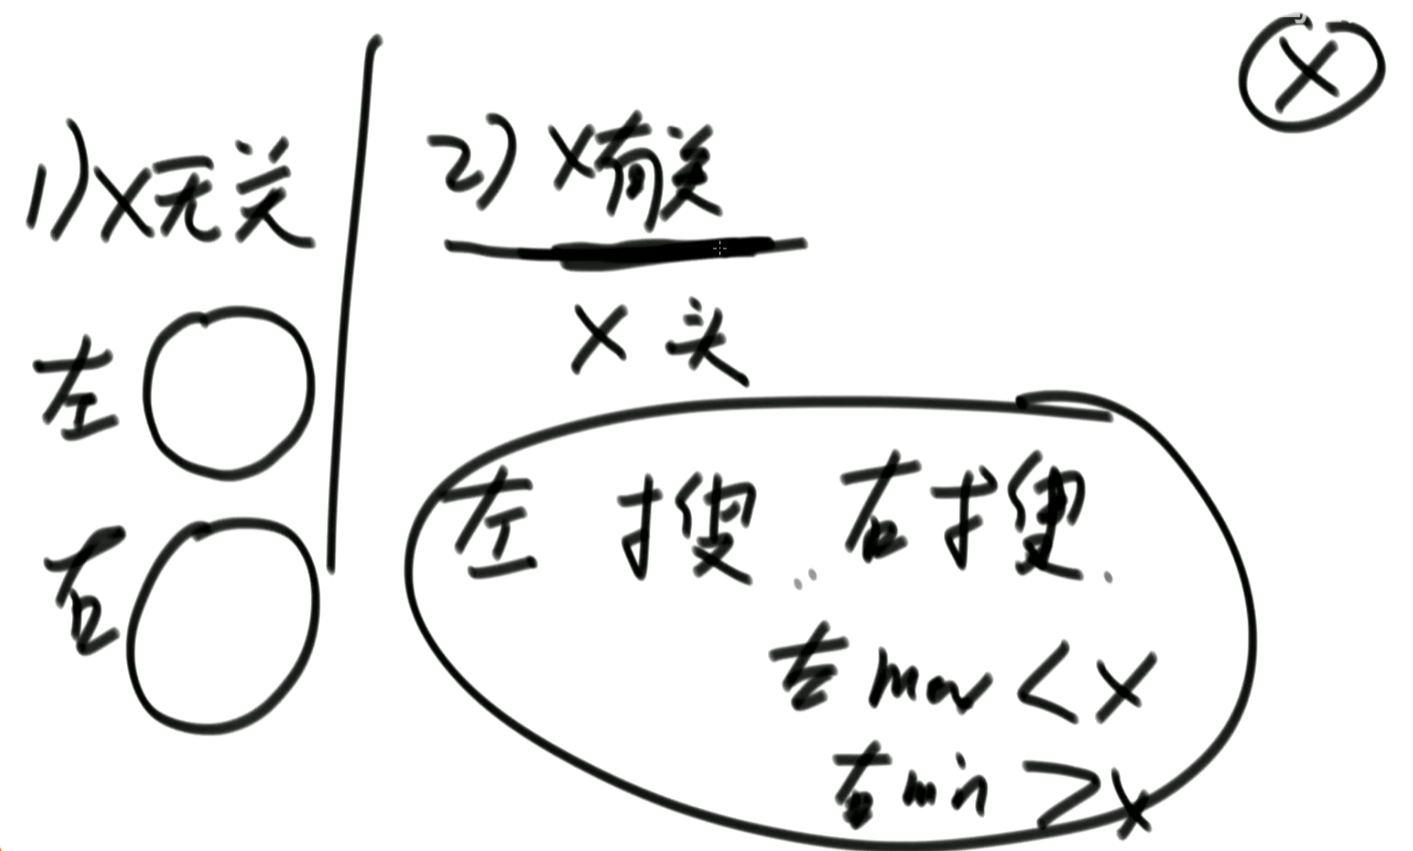 X
1) X无关
左
右
2) X有关
X 头
左 搜 右搜
左 max < X
右 min > X